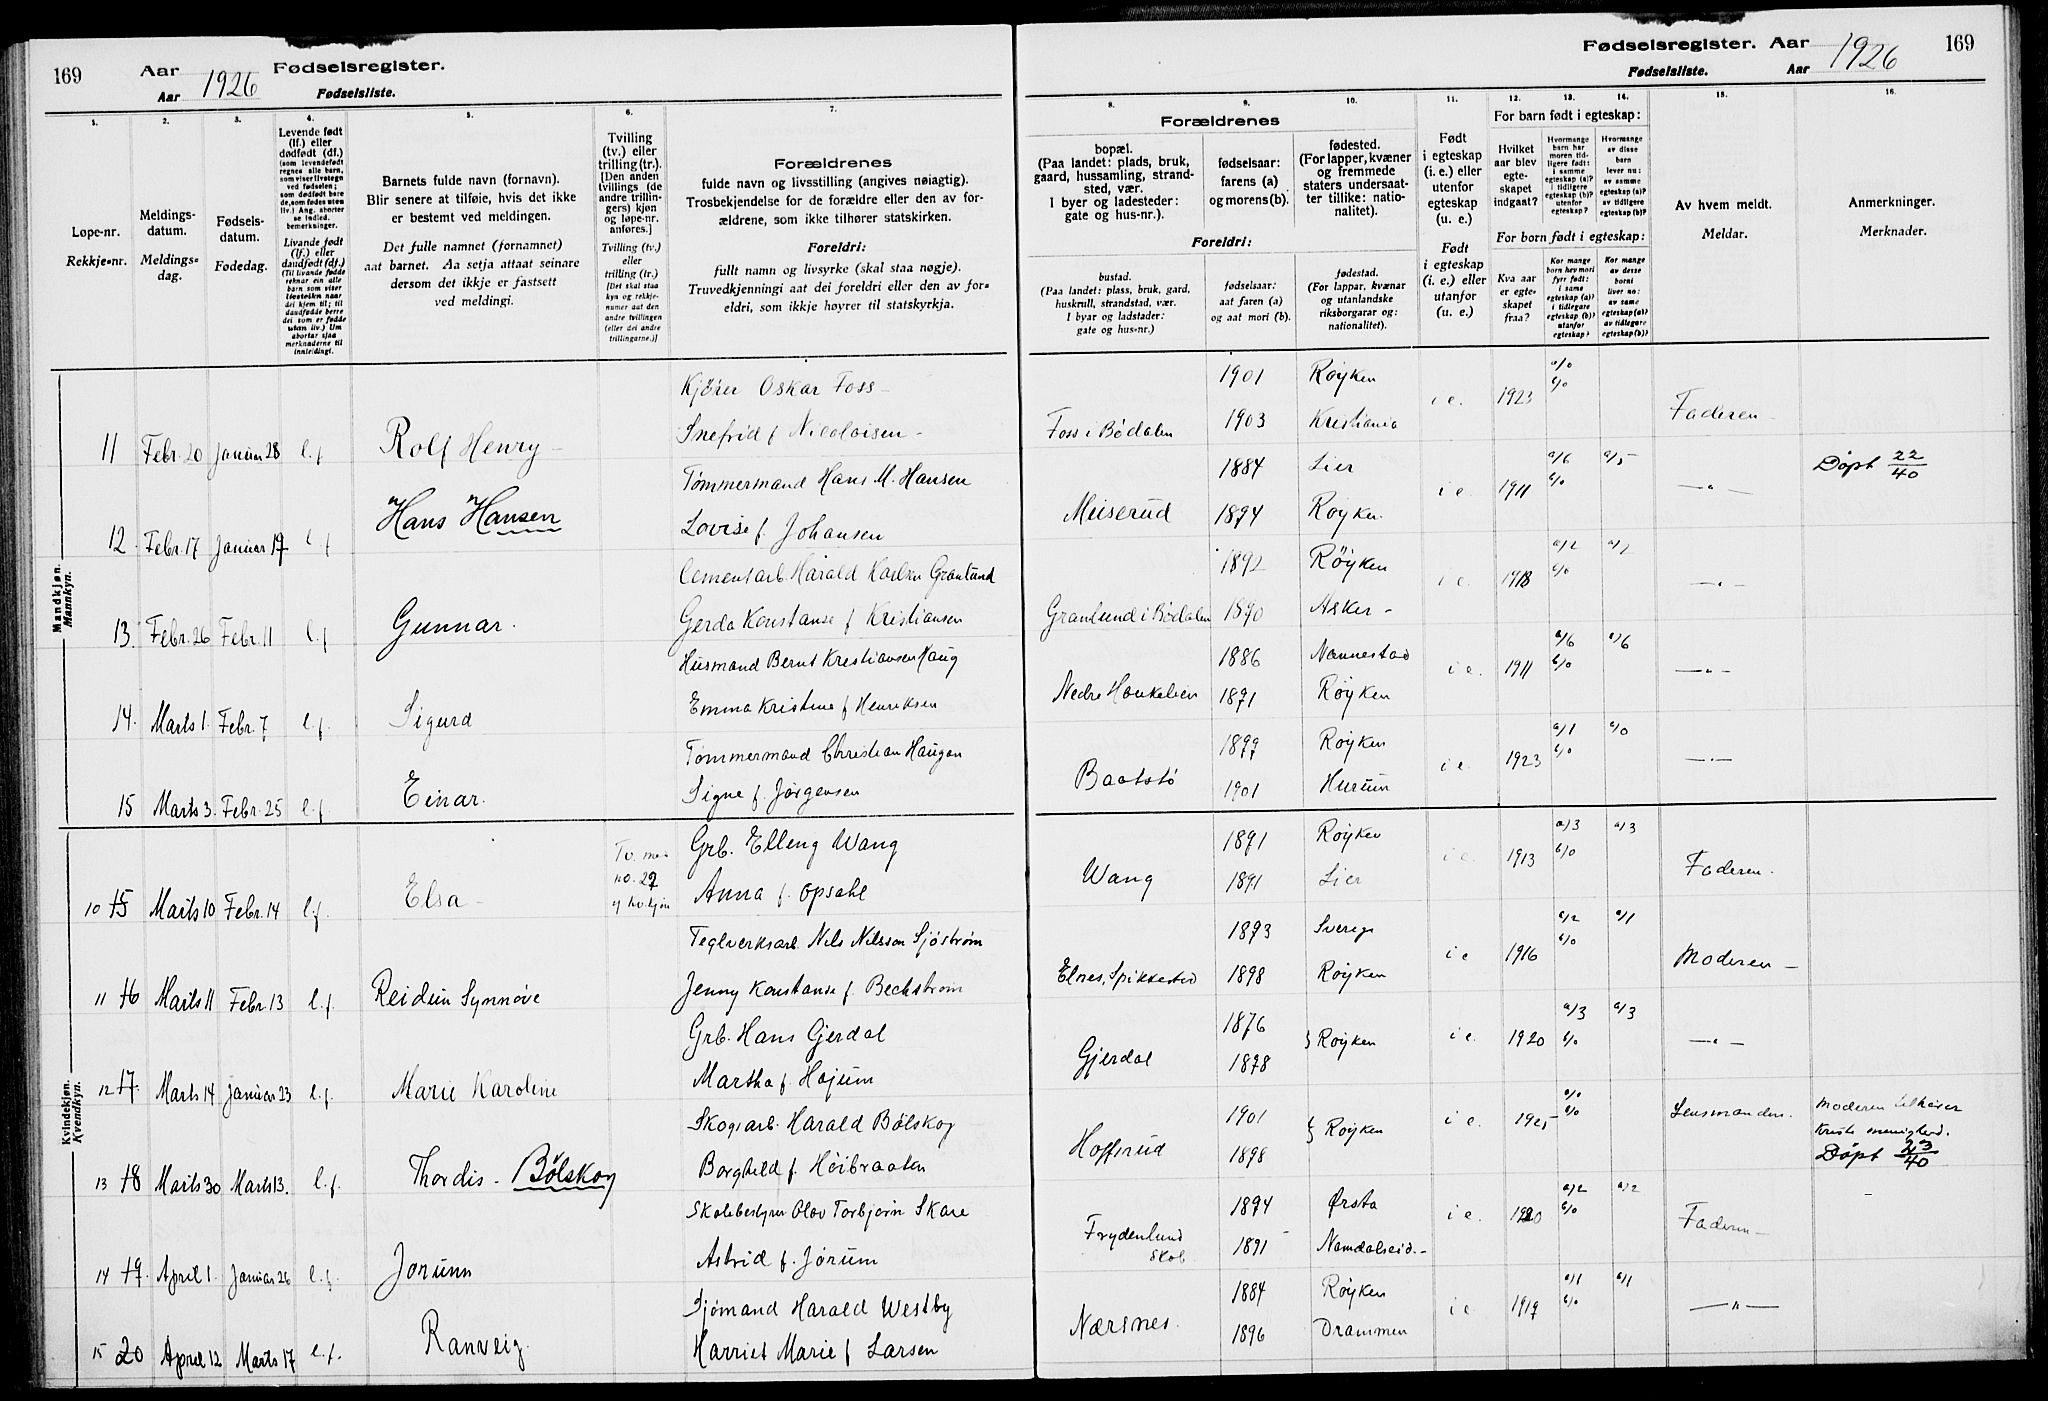 169
Aar 1926 Fødselsregister.
Aar Fødselsliste.
Fødselsregister. Aar 1926
Fødselsliste. Aar
169
1. 2. 3. 4. 5. 6. 7. 8. 9. 10. 11. 12. 13. 14. 15. 16.
Løpe-nr.
Rekkje-nr.
Meldings-
datum.
Meldings-
dag.
Fødsels-
datum.
Fødedag.
Levende født
(lf.) eller
dødfødt (df.)
Barnets fulde navn (fornavn).
Blir senere at tilføie, hvis det ikke
er bestemt ved meldingen.
Det fulle namnet (fornamnet)
aat barnet. Aa setja attaat seinare
dersom det ikkje er fastsett
ved meldingi.
Tvilling
(tv.) eller
trilling (tr.).
[Den anden
tvillings (de
andre trillin-
gers) kjøn
og løpe-nr.
anføres.]
Tvilling (tv.)
eller
trilling (tr.)
Forældrenes
fulde navn og livsstilling (angives nøiagtig).
Trosbekjendelse for de forældre eller den av for-
ældrene, som ikke tilhører statskirken.
Foreldri:
fullt namn og livsyrke (skal staa nøgje).
Truvedkjenningi aat dei foreldri eller den av for-
eldri, som ikkje høyrer til statskyrkja.
Forældrenes
bopæl.
(Paa landet: plads, bruk,
gaard, hussamling, strand-
sted, vær.
I byer og ladesteder:
gate og hus-nr.).
fødselsaar:
farens (a)
og morens (b).
fødested.
(For lapper, kvæner
og fremmede
staters undersaat-
ter tillike: natio-
nalitet).
Foreldri:
bustad.
(Paa landet: plass, bruk, gard,
huskrull, strandstad, vær.
I byar og ladstader:
gate og hus-nr.)
fødselsaar:
aat faren (a)
og aat mori (b).
fødestad.
(For lappar, kvænar
og utanlandske
riksborgarar og:
nationalitet).
Født
i egteskap
(i. e.) eller
utenfor
egteskap
(u. e.)
Født
i egteskap
(i. e.) eller
utanfor
(u. e.)
For barn født i egteskap:
Hvilket
aar blev
egte-
skapet
indgaat?
For born født i egteskap:
Kva aar
er egte-
skapet
fraa?
Av hvem meldt.
Meldar.
Anmerkninger.
Merknader.
Mandkjøn.
Mannkyn.
Kjører Oskar Foss 1901 Røyken a/0
11 Febr. 20 Januar 28 l.f Rolf Henry Snefrid f. Nicolaisen Foss i Bødalen 1903 Kristiania i e. 1923 b/0 Faderen
Tømmermand Hans M. Hansen 1884 Lier a/6 a/5 Døpt 22/40
12. Febr. 17 Januar 19 l.f Hans Hansen Lovise f. Johansen Miiserud 1894 Røyken i e. 1911 b/0 — " —
Cementarb. Harald Karlsen Granlund 1892 Røyken a/2
13. Febr. 26 Febr. 11 l.f Gunnar. Gerda Konstanse f Kristiansen Granlund i Bødalen 1890 Asker i e. 1918 b/0 — " —
Husmand Bernt Kristiansen Haug 1886 Nannestad a/6 a/6
14. Marts 1. Febr. 7 l.f. Sigurd Emma Kristine f Henriksen Nedre 1891 Røyken i e. 1911 b/0 — " —
Tømmermand Christian Haugan 1899 Røyken a/1 a/0
15 Marts 3. Febr. 25 l.f. Einar. Signe f. Jørgensen Baatstø 1901 Hurum i e. 1923 b/0 — " —
Kvindekjøn.
Kvendkyn.
Grb. Elleng Wang 1891 Røyken a/3 a/3
10 15 Marts 10 Febr. 14 l.f. Elsa Tv. med no. 29 Anna f. Opsahl Wang 1891 Lier i e. 1913 b/0 Faderen.
Teglverksarb. Nils Nilsson Sjöström 1893 Sverige a/2 a/1
11 16 Marts 11 Febr. 13 l.f. Reidun Synnøve Jenny Konstanse f. Beckstrøm Elnes, Spikkestad 1898 Røyken i e 1916 b/0 Moderen
Grb. Hans Gjerdal 1876 a/3 a/3
12 17. Marts 14 Januar 23 l.f. Marie Karoline Martha f. Højum Gjerdal 1878 } Røyken i e. 1920 b/0 — " —
Skogsarb. Harald Bølskog 1901 a/0 Moderen tilhører
13 18 Marts 30 Marts 13. l.f. Thordis Bølskog Borghild f. Høibraaten Hoffsrud 1898 } Røyken i e. 1925 b/0 Lensmanden. Kristi menighed.
Døpt 23/40
Skolebestyrer Olav Torbjørn Skare 1894 Ørsta a/2 a/2
14 19. April 1. Januar 26 l.f. Jorunn Astrid f. Jørum Frydenlund Skol. 1891 Namdalseid. i e. 1920 b/0 Faderen
Sjømand Harald Westby 1884 Røyken a/1 a/1
15 20 April 12 Marts 17 l.f. Ranveig Harriet Marie f Larsen Nærsnes. 1896 Drammen i e. 1919 b/0 — " —